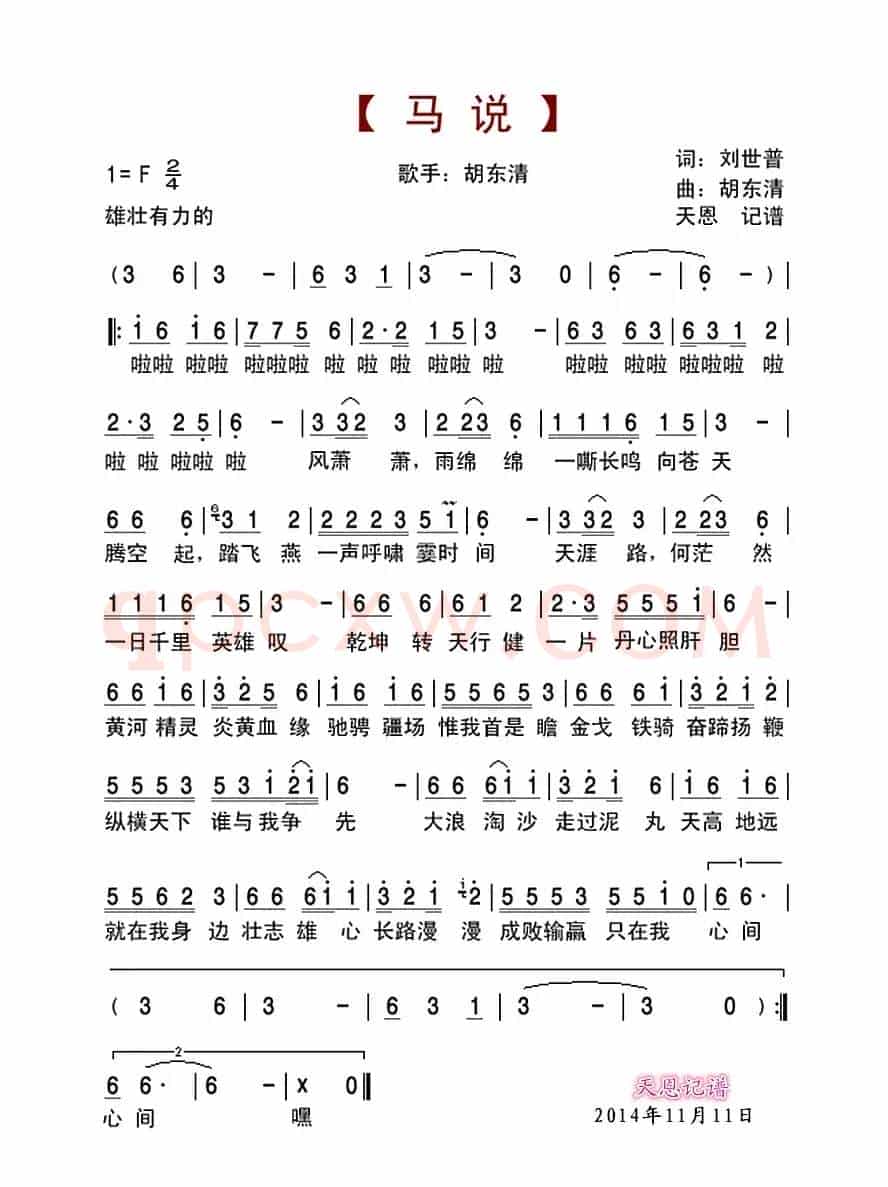 【 马 说 】
1= F 2/4
歌手：胡东清
词：刘世普
曲：胡东清
雄壮有力的
天恩 记谱
( 3 6 | 3 - | 6 3 1 | 3 - | 3 0 | 6 - | 6 - ) |
‖: i 6 i 6 | 7 7 5 6 | 2 · 2 1 5 | 3 - | 6 3 6 3 | 6 3 1 2 |
啦啦 啦啦 啦啦啦 啦 啦 啦 啦啦 啦 啦啦 啦啦 啦啦啦 啦
2 · 3 2 5 | 6 - | 3 3 2 3 | 2 2 3 6 | 1 1 1 6 1 5 | 3 - |
啦 啦 啦啦 啦 风萧 萧，雨绵 绵 一嘶长鸣 向苍 天
6 6 6 | 6 3 1 2 | 2 2 2 3 5 i | 6 - | 3 3 2 3 | 2 2 3 6 |
腾空 起，踏飞 燕 一声呼啸 霎时 间 天涯 路，何茫 然
1 1 1 6 1 5 | 3 - | 6 6 2 | 6 1 2 | 2 · 3 5 5 5 i | 6 - |
一日千里 英雄 叹 乾坤 转 天行 健 一 片 丹心照肝 胆
6 6 i 6 | 3 2 5 6 | i 6 i 6 | 5 5 6 5 3 | 6 6 6 i | 3 2 i 2 |
黄河 精灵 炎黄血 缘 驰骋 疆场 惟我首是 瞻 金戈 铁骑 奋蹄扬 鞭
5 5 5 3 5 3 i 2 i | 6 - | 6 6 6 i i | 3 2 i 6 | i 6 i 6 |
纵横天下 谁与我争 先 大浪 淘 沙 走过泥 丸 天高 地远
1
5 5 6 2 3 | 6 6 6 i i | 3 2 i i 2 | 5 5 5 5 5 5 i 0 | 6 6 · |
就在我身 边 壮志 雄 心 长路漫 漫 成败输赢 只在我 心 间
( 3 6 | 3 - | 6 3 1 | 3 - | 3 0 ) :‖
2
6 6 · | 6 - | x 0 ‖
心 间 嘿
天恩记谱
2014年11月11日
qpcxw.com